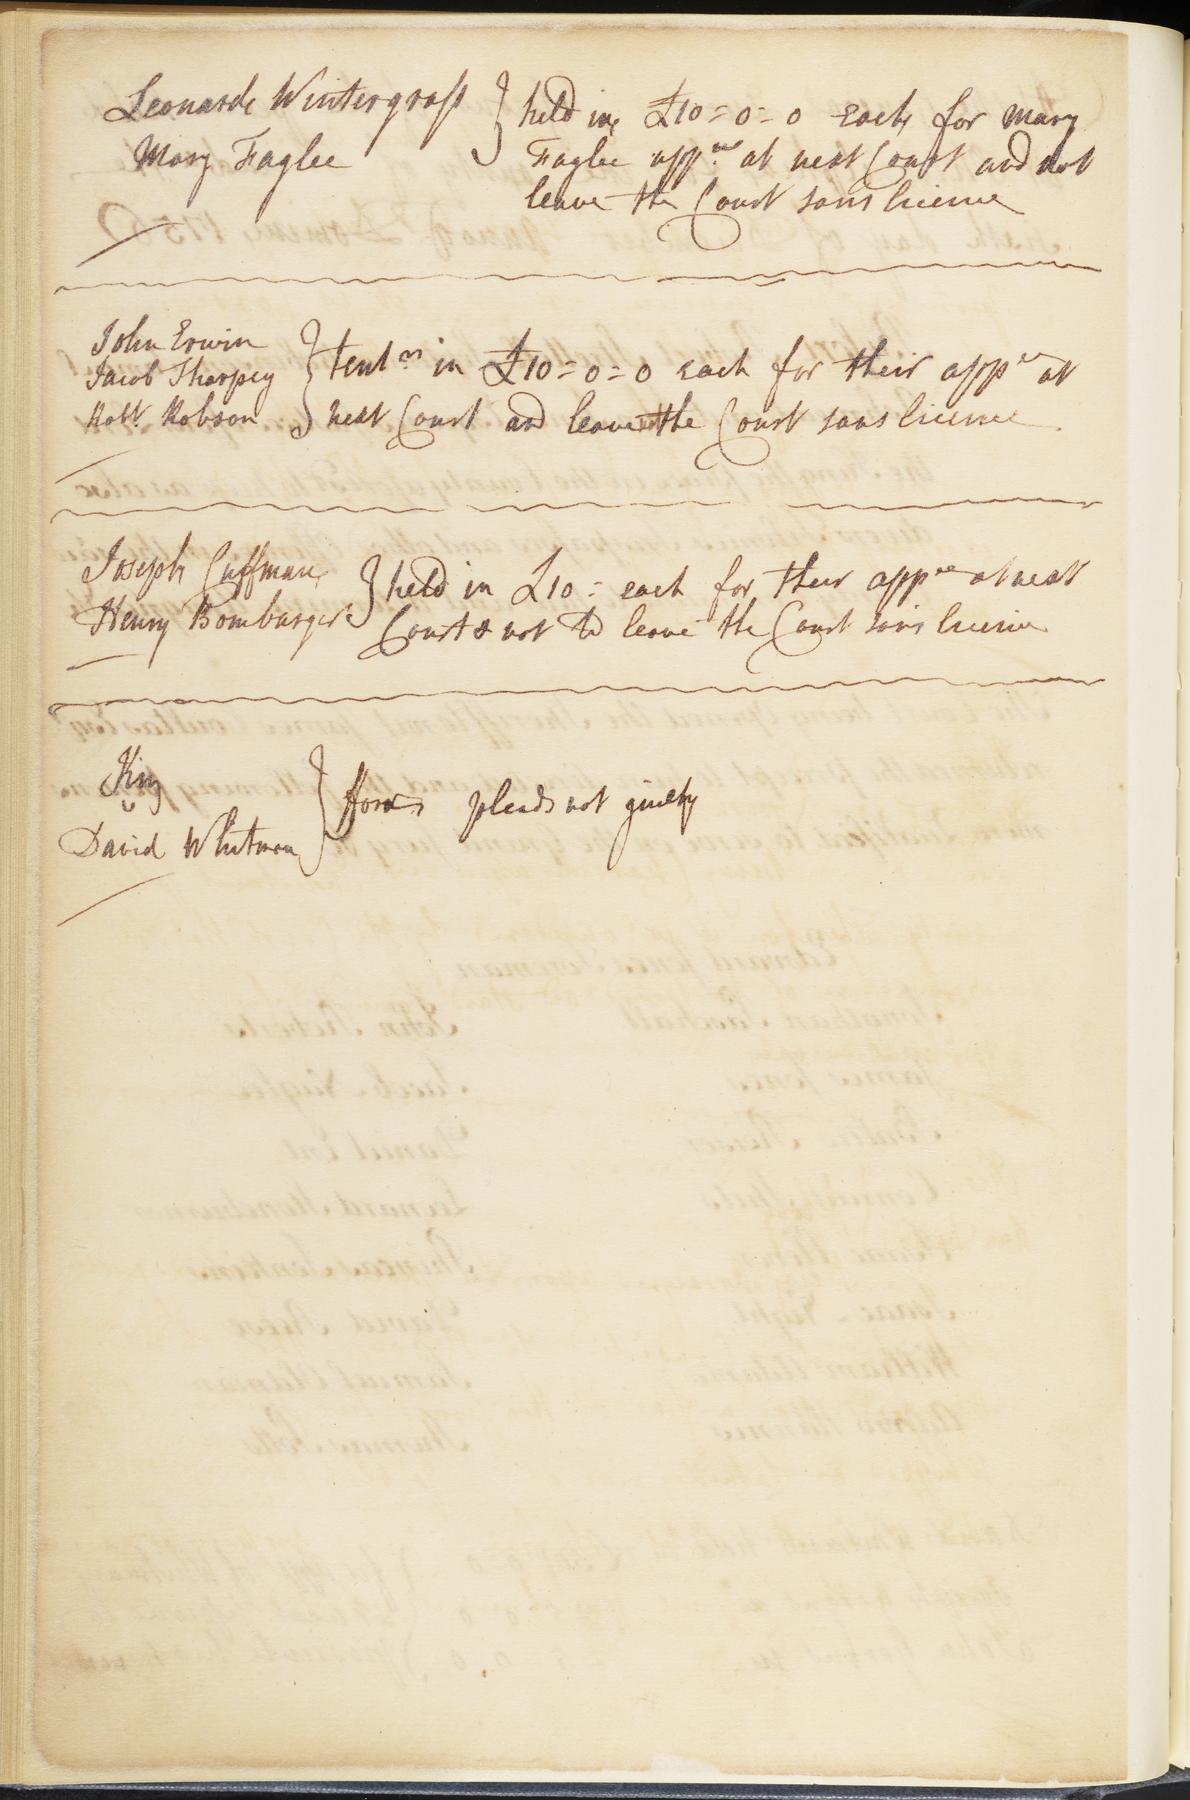 Leonard Wintergrass } held in £10=0=0 Each for Mary
Mary Faglee Faglee app.ce at next Court and not
leave the Court sans licence
John Erwin
Jacob Tharpey } tent.m in £10=0=0 each for their app.ce at
Robt. Robson next Court and leave the Court sans licence
Joseph Cuffman } held in £10= each for their appce at next
Henry Bombarger Court & not to leave the Court sans licence
King
v } pleads not guilty
David Whitman